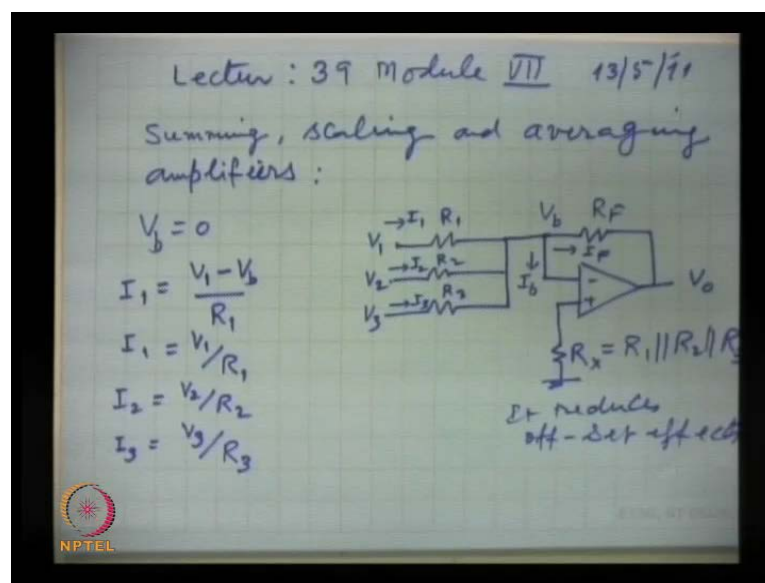 Lectur : 39 Module VII 13/5/11
Summing, scaling and averaging
amplifiers :
V_b = 0
I_1 = V_1 - V_b / R_1
I_1 = V_1/R_1
I_2 = V_2/R_2
I_3 = V_3/R_3
→I_1 R_1 V_b R_F
V_1 → I_F
→I_2 R_2 ↓
V_2 I_b - V_o
→I_3 R_3 +
V_3
R_x = R_1 || R_2 || R
It reduces
off-set effects
NPTEL